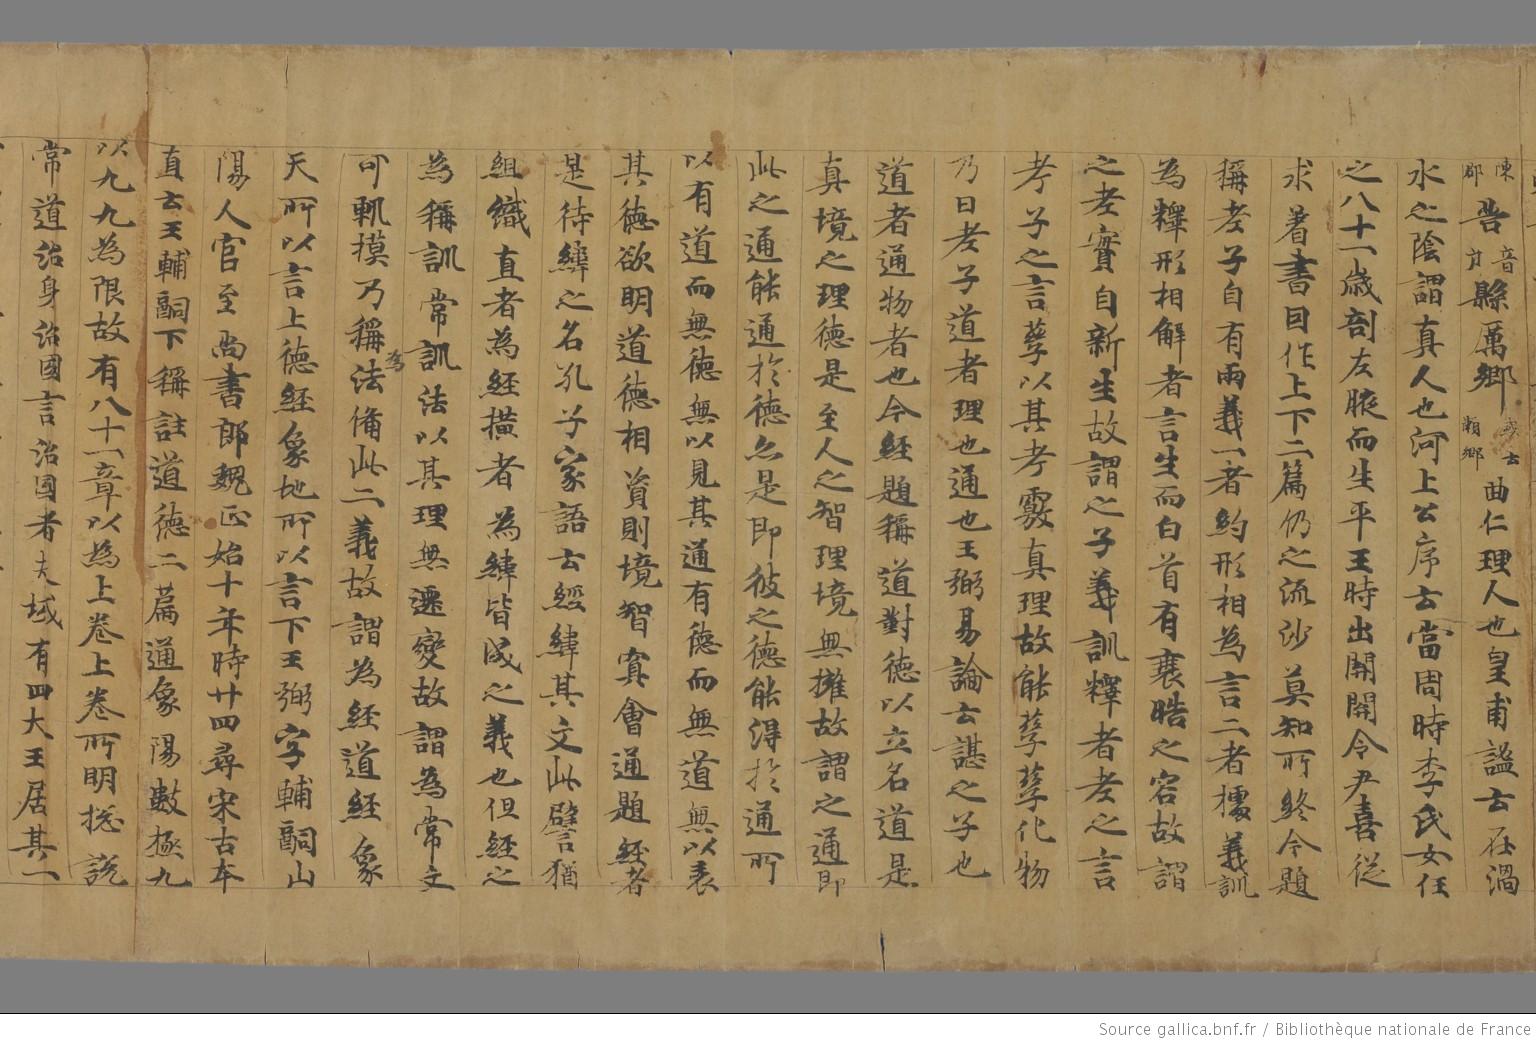 陳郡苦音戶縣厲鄉或云瀨鄉曲仁理人也皇甫謐云在渦
水之陰謂真人也河上公序云當周時李氏女任
之八十一歲剖左腋而生平王時出關關令尹喜從
求著書因作上下二篇仍之流沙莫知所終今題
稱老子自有兩義一者約形相為言二者據義訓
為釋形相解者言生而白首有衰皓之容故謂
之老實自新生故謂之子義訓釋者老之言
考子之言孳以其考覈真理故能孳孳化物
乃曰老子道者理也通也王弼易論云諶之子也
道者通物者也今經題稱道對德以立名道是
真境之理德是至人之智理境無擁故謂之通即
此之通能通於德亦是即彼之德能得於通所
以有道而無德無以見其通有德而無道無以表
其德欲明道德相資則境智冥會通題經者
是待緯之名孔子家語云經緯其文此譬猶
組織直者為經橫者為緯皆成之義也但經之
為稱訓常訓法以其理無遷變故謂為常文
可軌摸乃稱為法備此二義故謂為經道經象
天所以言上德經象地所以言下王弼字輔嗣山
陽人官至尚書郎魏正始十年時廿四尋宋古本
直云王輔嗣下稱註道德二篇通象陽數極九
以九九為限故有八十一章以為上卷上卷所明揔說
常道治身治國言治國者夫域有四大王居其一
Source gallica.bnf.fr / Bibliothèque nationale de France